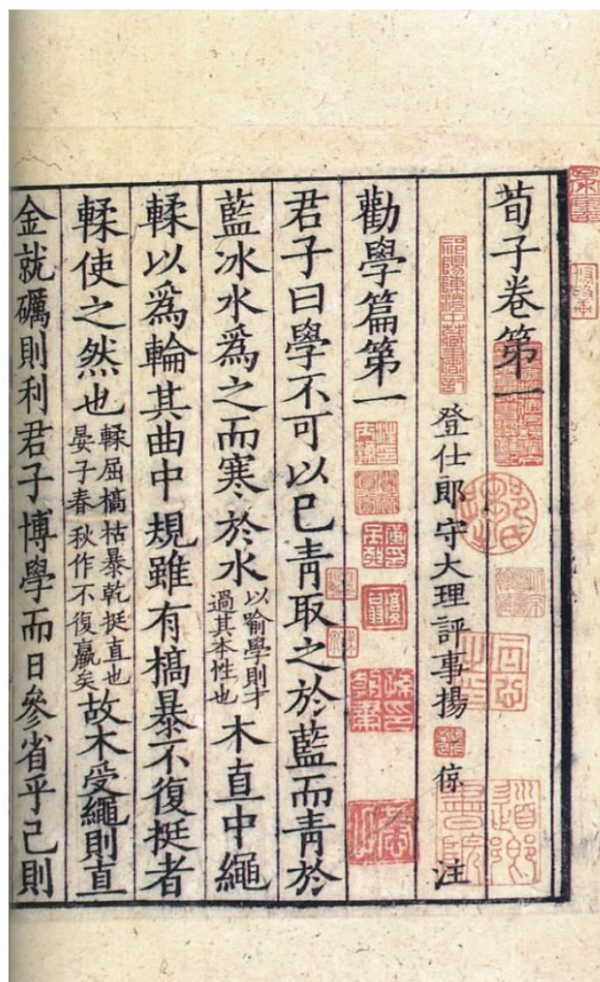 荀子卷第一
登仕郎守大理評事揚倞注
勸學篇第一
君子曰學不可以已青取之於藍而青於
藍冰水爲之而寒於水以喻學則才過其本性也木直中繩
輮以爲輪其曲中規雖有槁暴不復挺者
輮使之然也輮屈槁枯暴乾挺直也晏子春秋作不復贏矣故木受繩則直
金就礪則利君子博學而日參省乎己則
祁陽陳澄中藏書記